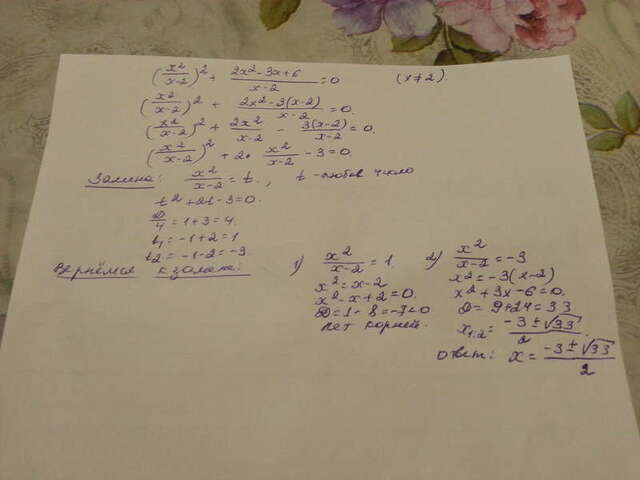 (x²/(x-2))² + (2x²-3x+6)/(x-2) = 0 (x≠2).
(x²/(x-2))² + (2x²-3(x-2))/(x-2) = 0.
(x²/(x-2))² + 2x²/(x-2) - 3(x-2)/(x-2) = 0.
(x²/(x-2))² + 2· x²/(x-2) - 3 = 0.
Замена: x²/(x-2) = t., t - любое число
t² + 2t - 3 = 0.
D/4 = 1+3 = 4.
t₁ = -1+2 = 1
t₂ = -1-2 = -3.
Вернёмся к замене:
1) x²/(x-2) = 1.
x² = x-2
x² - x + 2 = 0.
D = 1 - 8 = -7<0
нет корней.
2) x²/(x-2) = -3
x² = -3(x-2)
x² + 3x - 6 = 0.
D = 9+24 = 33
x₁,₂ = (-3 ± √33)/2.
Ответ: x = (-3 ± √33)/2